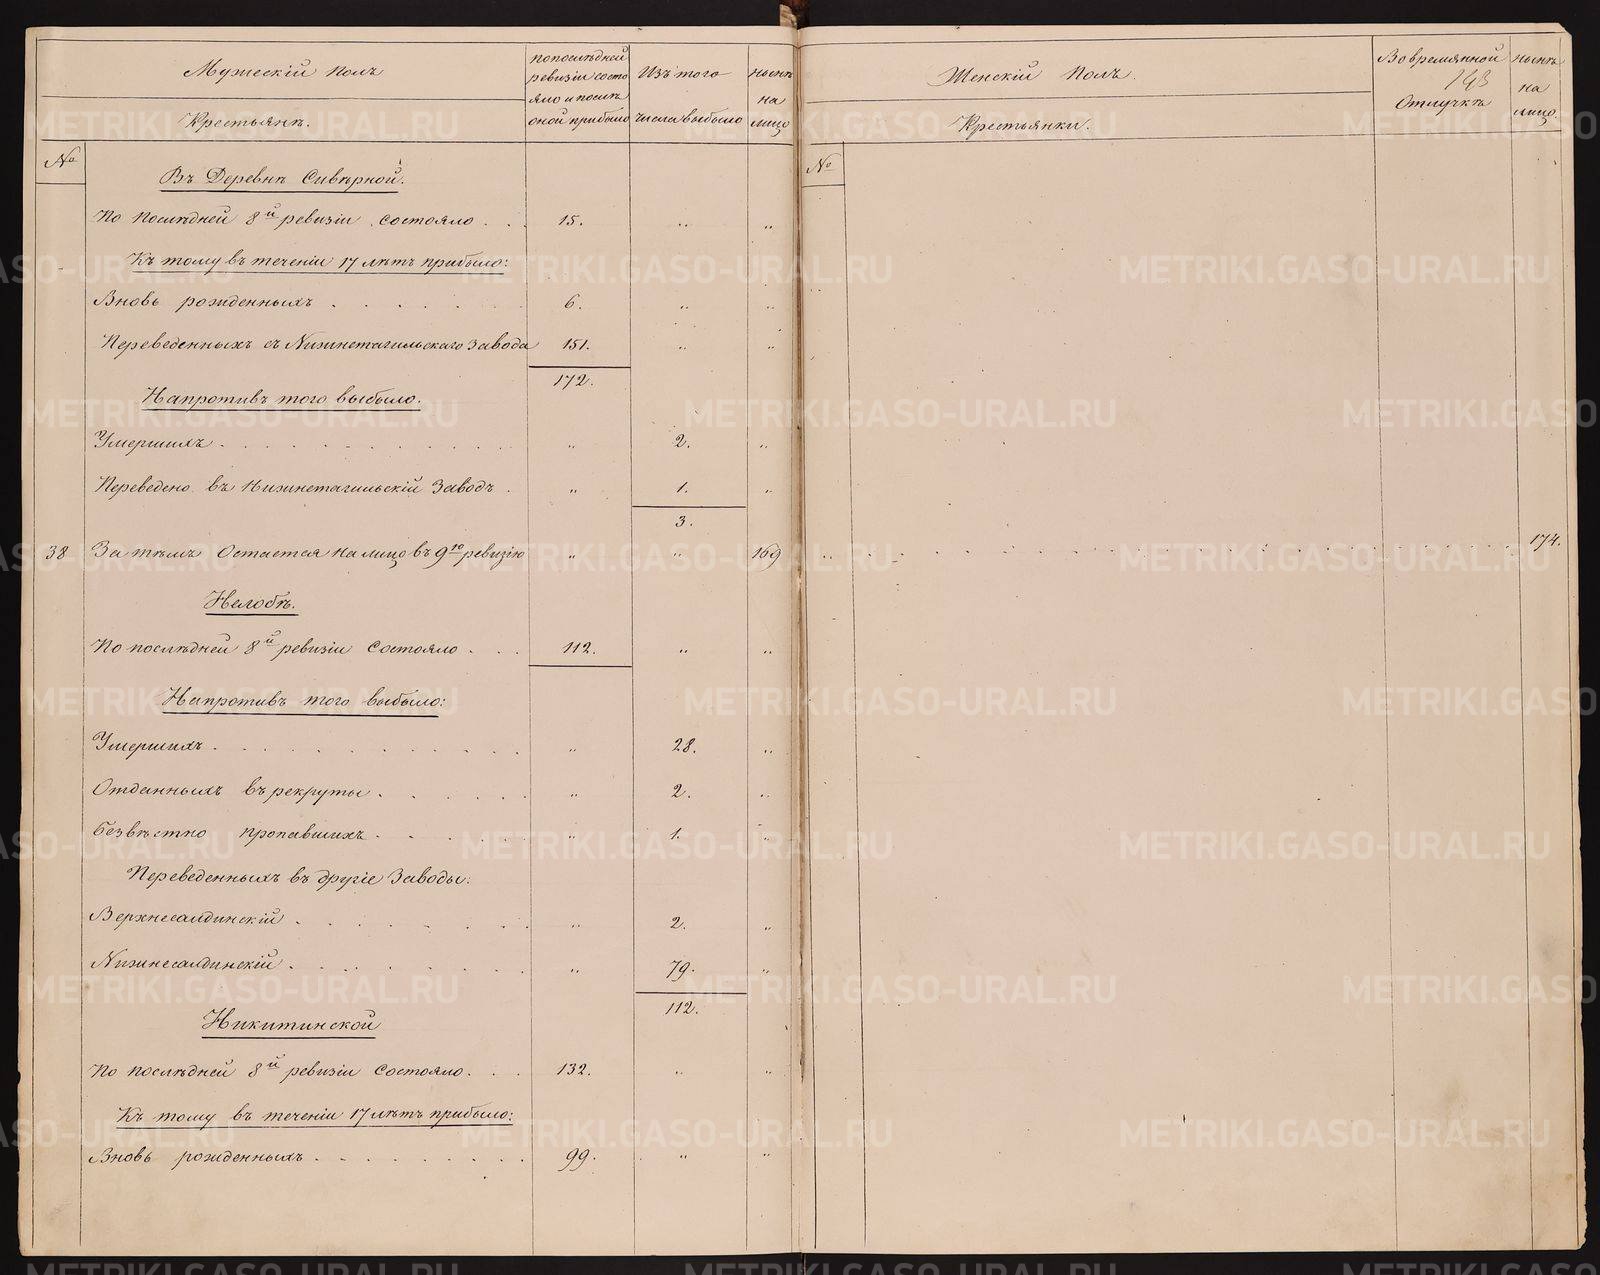 Мужескій полъ
Крестьянъ.
по последней
ревизіи состо
яло и после
оной прибыло
Изъ того
числа выбыло
ныне
на
лицо
№
Въ Деревне Сиверной.
По последней 8й ревизіи состояло . . . 15. „ „
Къ тому въ теченіи 17 летъ прибыло:
Вновь рожденныхъ . . . . . . . 6. „ „
Переведенныхъ съ Нижнетагильскаго завода 151. „ „
172.
Напротивъ того выбыло.
Умершихъ . . . . . . . . . „ 2. „
Переведено въ Нижнетагильскій Заводъ . „ 1. „
3.
38 За темъ Остается на лицо въ 9ю ревизію „ „ 169
Нелобъ.
По последней 8й ревизіи Состояло . . . 112. „ „
Напротивъ того выбыло:
Умершихъ . . . . . . . . . „ 28. „
Отданныхъ въ рекруты . . . . . „ 2. „
Безвестно пропавшихъ . . . . . „ 1. „
Переведенныхъ въ другіе Заводы:
Верхнесалдинскій . . . . . . . „ 2. „
Нижнесалдинскій . . . . . . . „ 79. „
112.
Никитинской
По последней 8й ревизіи состояло . . . 132. „ „
Къ тому въ теченіи 17 летъ прибыло:
Вновь рожденныхъ . . . . . . . 99. „ „
Женскій Полъ.
Крестьянки.
Во временной
Отлучке
148
ныне
на
лицо
№
„ . . . . . . . . . . . . . . . . . . 174.
METRIKI.GASO-URAL.RU